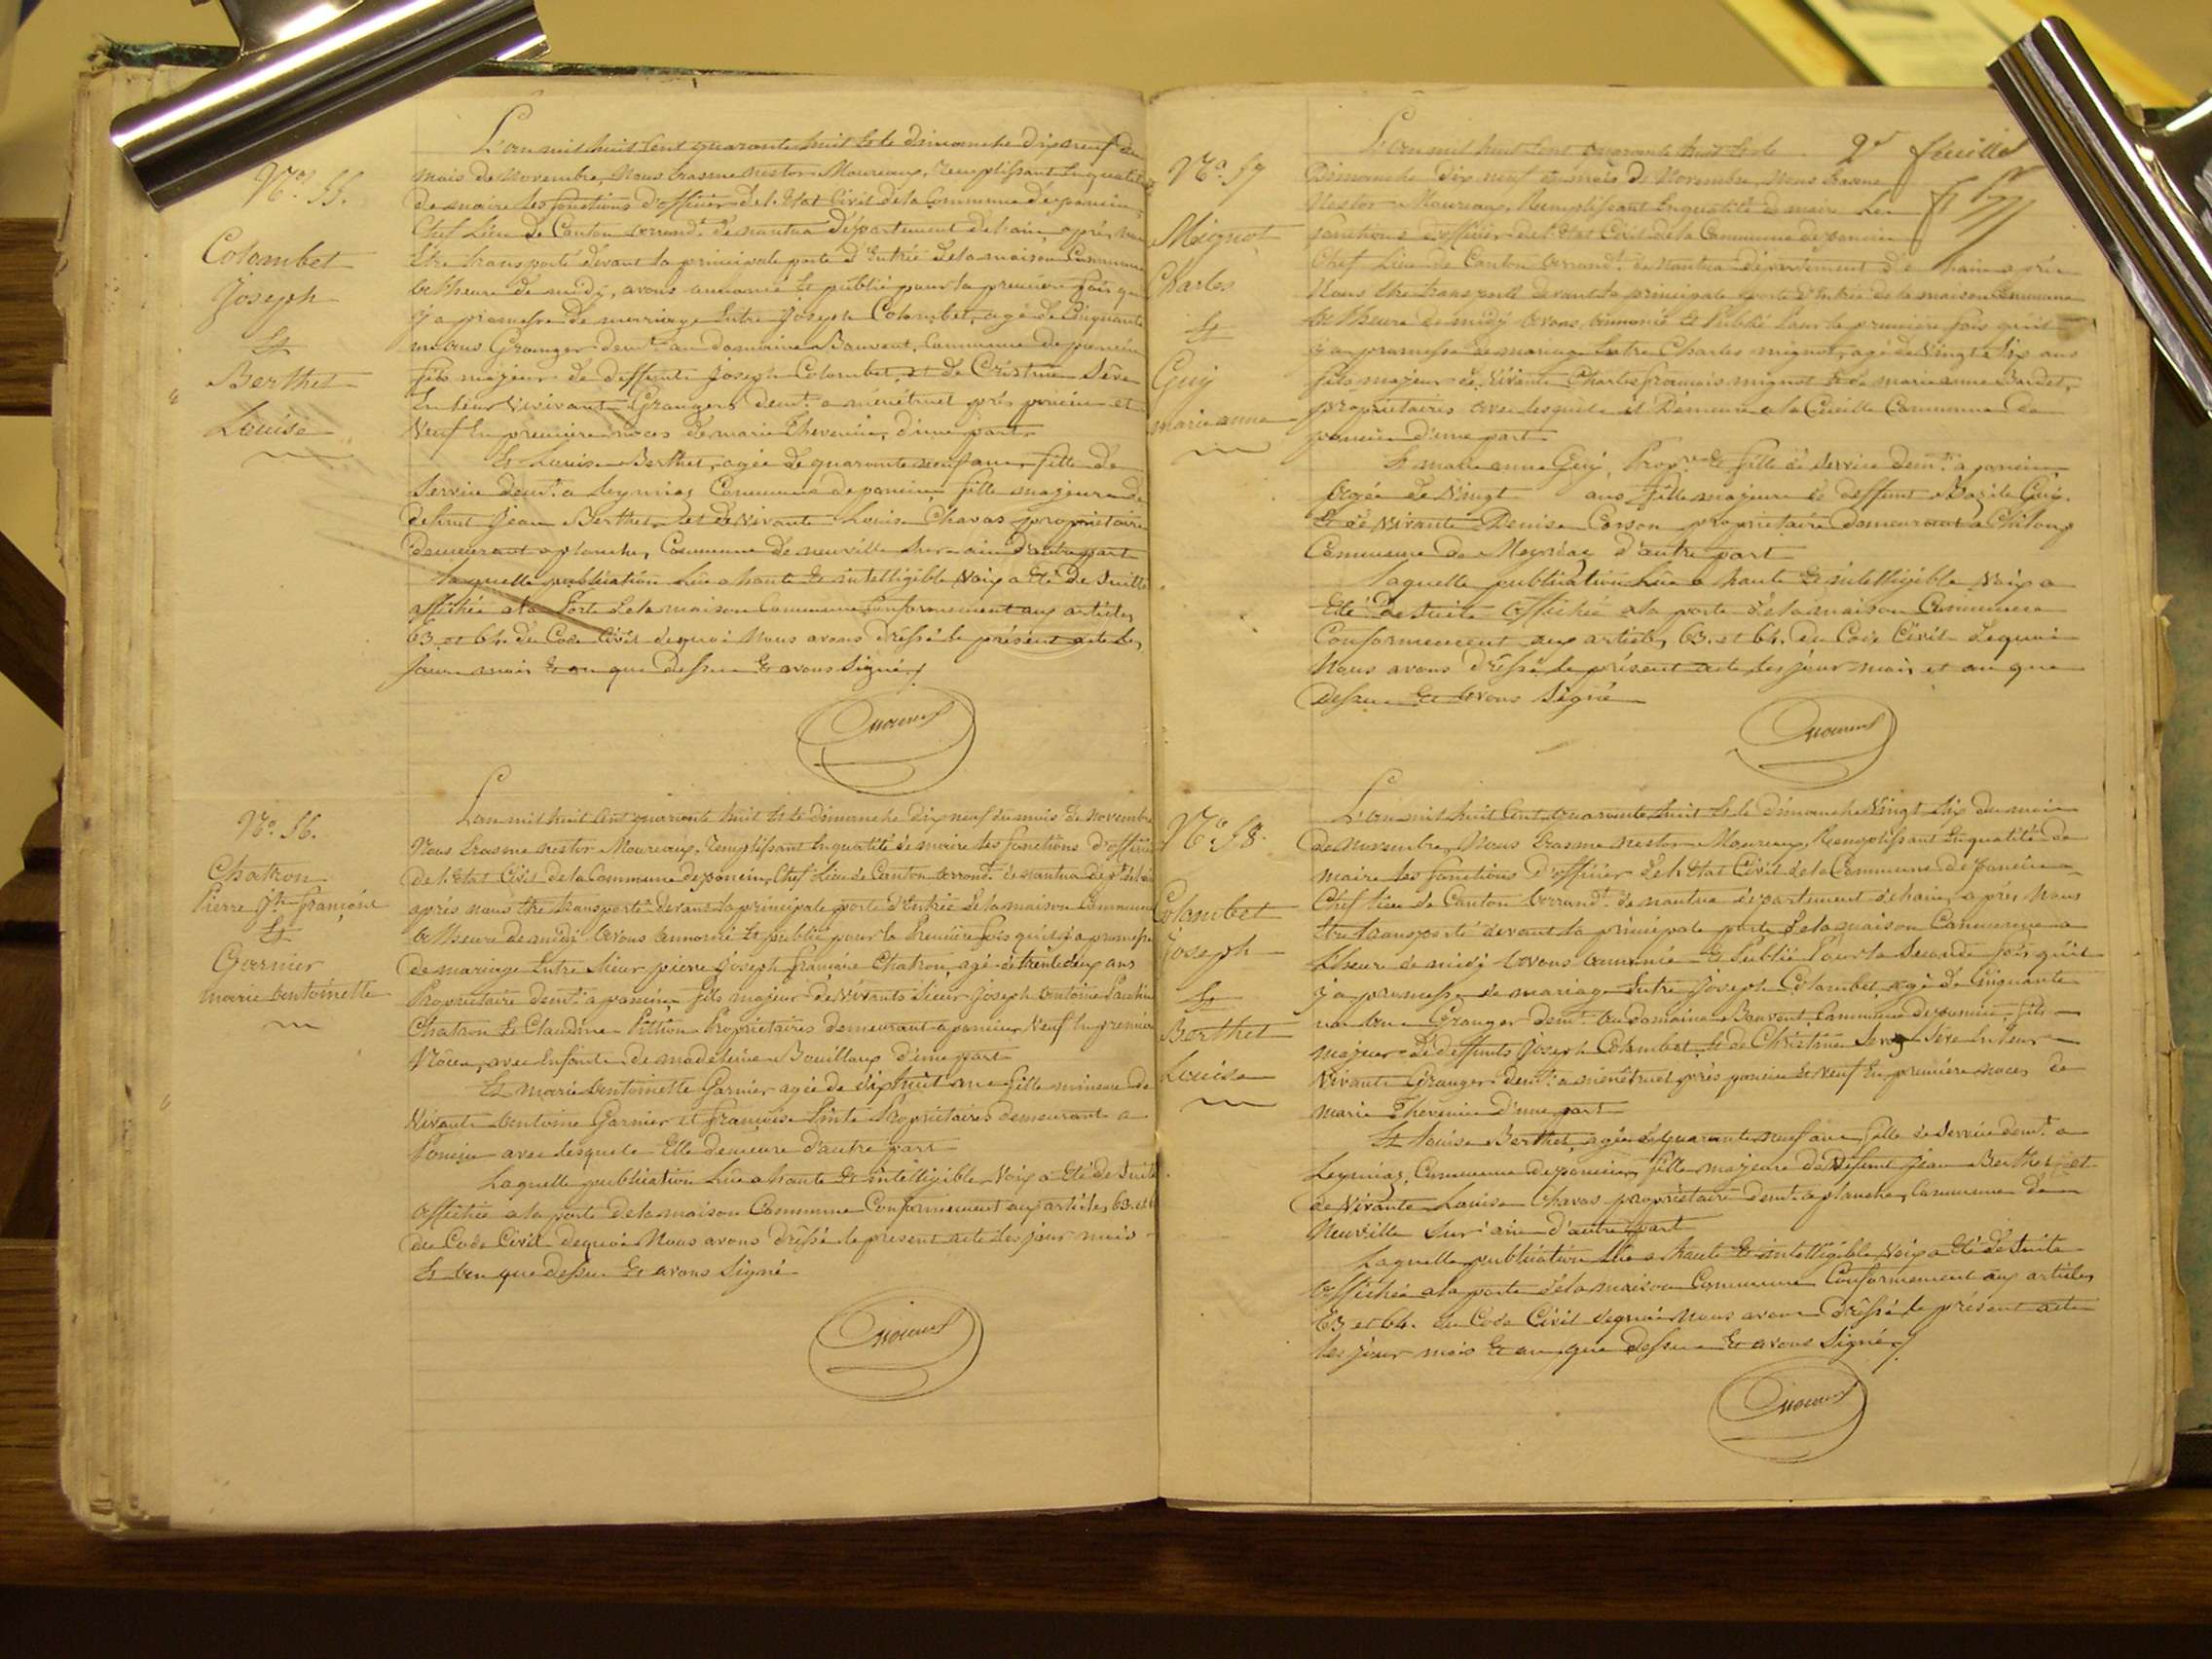 N.º 55.
Colombet
Joseph
Et
Berthet
Louise
L'an mil huit Cent quarante huit Et le dimanche dix neuf du
mois de Novembre, Nous Erasme nestor Moureaux, remplissant En qualité
de maire les fonctions d'officier de l'Etat Civil de la Commune de poncin,
Chef Lieu de Canton arrond.t de nantua département de l'ain, après nous
Etre transporté devant la principale porte d'Entrée de la maison Commune
a l'heure de midy, avons annoncé Et publié pour la première fois qu'il
y a promesse de marriage Entre Joseph Colombet, agé de Cinquante
un ans Granger dem.t au domaine Bauvent, Commune de poncin
fils majeur de deffunts Joseph Colombet, et de Cristine Sève
En leur vivivant Grangers dem.t a ménétruel près poncin et
Veuf En première noces de marie Thevenin, d'une part
Et Louise Berthet, agée de quarante neuf ans, fille de
Service dem.t a Leymiaz Commune de poncin fille majeure de
defunt Jean Berthet et de vivante Louise Chavas propriétaire
demeurant a planche, Commune de neuville Sur ain d'autre part
Laquelle publication Lûe a haute Et intelligible Voix a Eté de Suitte
affichée a la Porte de la maison Commune Conformement aux articles
63 et 64 du Code Civil dequoi Nous avons dréssé le présent acte les
jour mois Et an que dessus Et avons Signé
Moureaux
N.º 56.
Chatron
Pierre J.ph françois
Et
Garnier
marie antoinette
L'an mil huit Cent quarante huit Et le dimanche dix neuf du mois de Novembre
Nous Erasme nestor Moureaux, remplissant En qualité de maire les fonctions d'officier
de l'Etat Civil de la Commune de poncin, Chef Lieu de Canton arrond.t de nantua dep.t de l'ain
après nous Etre transporté devant la principale porte d'Entrée de la maison Commune
a l'heure de midi avons annoncé Et publié pour la Première fois qu'il y a promesse
de mariage Entre Sieur pierre Joseph françois Chatron, agé de trente deux ans
Propriétaire dem.t a poncin fils majeur de vivants Sieur Joseph antoine
Chatron Et Claudine Pithion Propriétaires demeurant a poncin, Veuf En première
Nôces, avec Enfants de madeleine Bouilloux d'une part
Et marie antoinette Garnier agée de dix huit ans fille mineure de
Vivants antoine Garnier et françoise Propriétaires demeurant a
Poncin avec lesquels Elle demeure d'autre part
Laquelle publication Lûe a haute Et intelligible Voix a Eté de Suite
affichée a la porte de la maison Commune Conformement aux articles 63 et 64
du Code Civil dequoi Nous avons dréssé le present acte les jour mois
Et an que dessus Et avons Signé
Moureaux
2.e feuillet
N.º 57
Mignot
Charles
Et
Guy
marie anne
L'an mil huit Cent quarante huit Et le
Dimanche dix neuf du mois de Novembre, Nous Erasme
Nestor Moureaux, Remplissant En qualité de maire Les
fonctions d'officier de l'Etat Civil de la Commune de poncin
Chef Lieu de Canton arrond.t de Nantua département de l'ain après
Nous Etre transporté devant la principale porte d'Entrée de la maison Commune
a l'heure de midy avons annoncé Et Publié Pour la première fois qu'il
y a promesse de mariage Entre Charles mignot, agé de Vingt Six ans
fils majeur de Vivants Charles françois mignot Et de marie anne Bardet,
propriétaires avec lesquels il Demeure a la Cueille Commune de
poncin d'une part
Et marie anne Guy, Prop.re Et fille de Service dem.t a poncin
agée de Vingt ans fille majeure de deffunt Bazile Guy
Et de Vivante Denise Corson propriétaire demeurant a Chiloup
Commune de Meyriat d'autre part
Laquelle publication Lûe a haute Et intelligible Voix a
Eté de Suite affichée a la porte de la maison Commune
Conformement aux articles 63. et 64. du Code Civil dequoi
Nous avons dréssé le présent acte les jour mois et an que
dessus Et avons Signé
Moureaux
N.º 58.
Colombet
Joseph
Et
Berthet
Louise
L'an mil huit Cent quarante huit Et le dimanche Vingt Six du mois
de novembre, Nous Erasme nestor Moureaux, Remplissant En qualité de
maire les fonctions d'officier de l'Etat Civil de la Commune de poncin
Chef lieu de Canton arrond.t de nantua département de l'ain, après Nous
Etre transporté devant la principale porte de la maison Commune a
L'heure de midi avons annoncé Et Publié Pour la Seconde fois qu'il
y a promesse de mariage Entre Joseph Colombet, agé de Cinquante
un ans Granger dem.t au domaine Bauvent, Commune de poncin, fils
majeur de deffunts Joseph Colombet, Et de Christine Sève En leur
Vivants Granger dem.t a ménétruel près poncin Et Veuf En première noces de
marie Thevenin d'une part
Et Louise Berthet, agée de quarante neuf ans fille de Service dem.t a
Leymiaz, Commune de poncin, fille majeure de Defunt Jean Berthet, et
de Vivante Louise Chavas propriétaire dem.t a planche, Commune de
Neuville Sur ain d'autre part
Laquelle publication Lûe a haute Et intelligible Voix a Eté de Suite
affichée a la porte de la maison Commune Conformement aux articles
63 et 64. du Code Civil dequoi Nous avons dréssé le présent acte
les jour mois Et an que dessus Et avons Signé
Moureaux